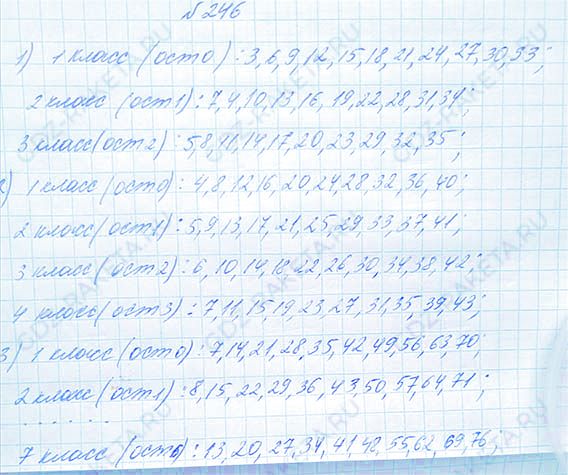 № 246
1) 1 класс (ост 0) : 3, 6, 9, 12, 15, 18, 21, 24, 27, 30, 33;
2 класс (ост 1) : 7, 4, 10, 13, 16, 19, 22, 28, 31, 34;
3 класс (ост 2) : 5, 8, 11, 14, 17, 20, 23, 29, 32, 35;
2) 1 класс (ост 0) : 4, 8, 12, 16, 20, 24, 28, 32, 36, 40;
2 класс (ост 1) : 5, 9, 13, 17, 21, 25, 29, 33, 37, 41;
3 класс (ост 2) : 6, 10, 14, 18, 22, 26, 30, 34, 38, 42;
4 класс (ост 3) : 7, 11, 15, 19, 23, 27, 31, 35, 39, 43;
3) 1 класс (ост 0) : 7, 14, 21, 28, 35, 42, 49, 56, 63, 70;
2 класс (ост 1) : 8, 15, 22, 29, 36, 43, 50, 57, 64, 71;
. . . . . .
7 класс (ост 6) : 13, 20, 27, 34, 41, 48, 55, 62, 69, 76;
GDZ-RAKETA.RU